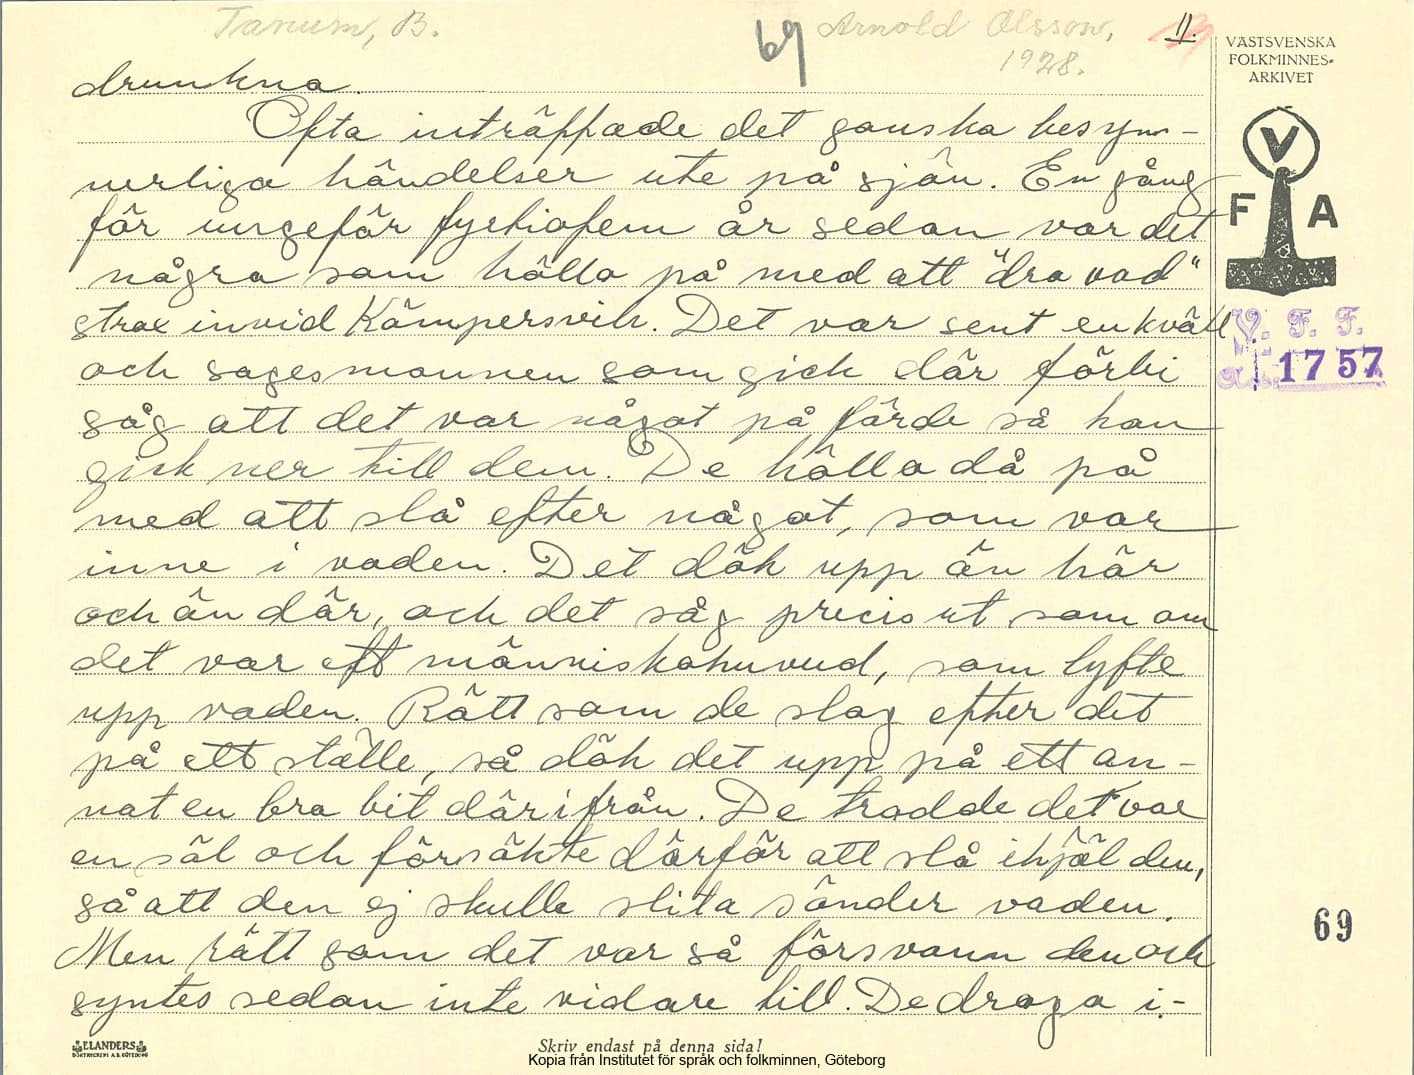 Tanum, B.
69
Arnold Olsson,
1928.
11.
VÄSTSVENSKA
FOLKMINNES-
ARKIVET
V
F A
V. F. F.
1757
drunkna.
Ofta inträffade det ganska besyn-
nerliga händelser ute på sjön. En gång
för ungefär fyrtiofem år sedan var det
några som hölla på med att "dra vad"
strax invid Kämpersvik. Det var sent en kväll
och sagesmannen som gick där förbi
såg att det var något på färde så han
gick ner till dem. De hölla då på
med att slå efter något, som var
inne i vaden. Det dök upp än här
och än där, och det såg precis ut som om
det var ett människohuvud, som lyfte
upp vaden. Rätt som de slog efter det
på ett ställe, så dök det upp på ett an-
nat en bra bit därifrån. De trodde det var
en säl och försökte därför att slå ihjäl den,
så att den ej skulle slita sönder vaden.
Men rätt som det var så försvann den och
syntes sedan inte vidare till. De droga i-
69
ELANDERS
BOKTRYCKERI A.B. GÖTEBORG
Skriv endast på denna sida!
Kopia från Institutet för språk och folkminnen, Göteborg